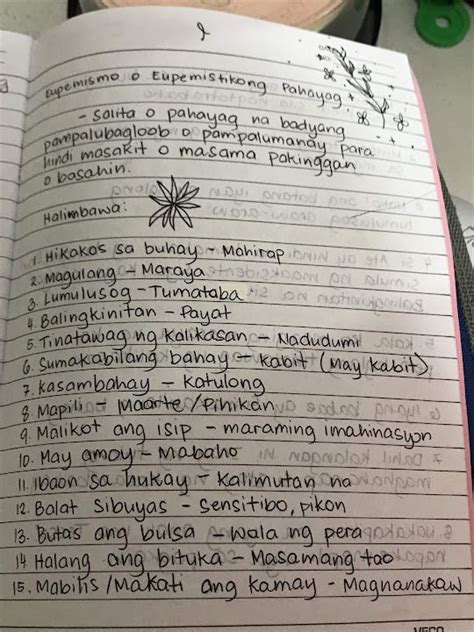 Eupemismo o Eupemistikong Pahayag
- Salita o pahayag na badyang
pampalubagloob o pampalumanay para
hindi masakit o masama pakinggan
o basahin.
Halimbawa:
1. Hikakos sa buhay - Mahirap
2. Magulang - Maraya
3. Lumulusog - Tumataba
4. Balingkinitan - Payat
5. Tinatawag ng Kalikasan - Nadudumi
6. Sumakabilang bahay - kabit (May kabit)
7. Kasambahay - Katulong
8. Mapili - Maarte / Pihikan
9. Malikot ang isip - maraming imahinasyon
10. May amoy - Mabaho
11. Ibaon sa hukay - Kalimutan na
12. Balat Sibuyas - Sensitibo, pikon
13. Butas ang bulsa - Wala ng pera
14 Halang ang bituka - Masamang tao
15. Mabilis / Makati ang kamay - Magnanakaw
VECO